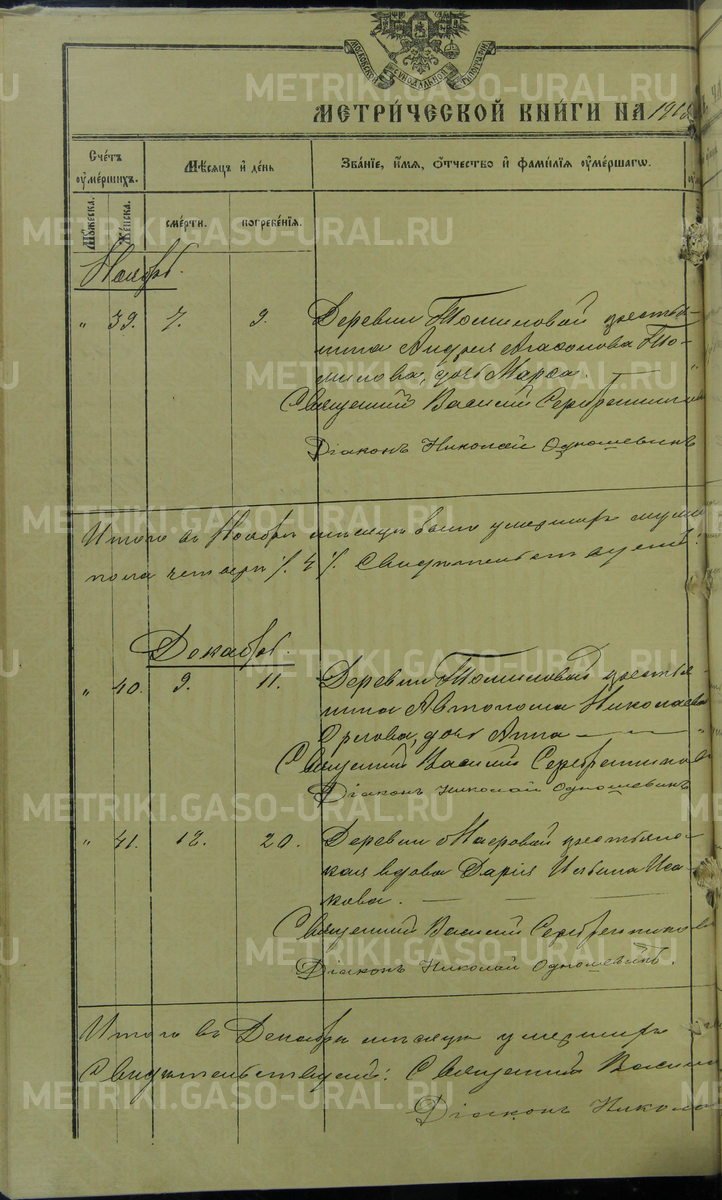 МОСКОВСКОЙ СѴНОДАЛЬНОЙ ТИПОГРАФІИ
МЕТРИ́ЧЕСКОЙ КНИ́ГИ НА 190
Сче́тъ ѹме́ршихъ.
Мѣ́сяцъ и де́нь
Зва́нїе, и́мя, ѻ́тчество и фами́лїя ѹме́ршагѡ.
Мꙋ́жеска.
Же́нска.
сме́рти.
погребе́нїя.
Ноябрь.
" 39. 7. 9. Деревни Томиловой крестья-
нина Андрея Агафонова То-
милова, дочь Марѳа. "
Священникъ Василій Серебренников
Діаконъ Николай Одношевинъ
Итого въ Ноябрѣ мѣсяцѣ было умершихъ
пола четыре /. 4 /. Свидѣтельствуемъ:
Декабрь.
" 40. 9. 11. Деревни Томиловой крестья-
нина Автонома Николаева
Орлова, дочь Анна "
Священникъ Василій Серебренников
Діаконъ Николай Одношевинъ
" 41. 18. 20. Деревни крестьянс-
кая вдова Дарія Иса-
кова.
Священникъ Василій Серебренников
Діаконъ Николай Одношевинъ.
Итого въ Декабрѣ мѣсяцѣ умершихъ
Свидѣтельствуемъ: Священникъ Васили
Діаконъ Никола
METRIKI.GASO-URAL.RU